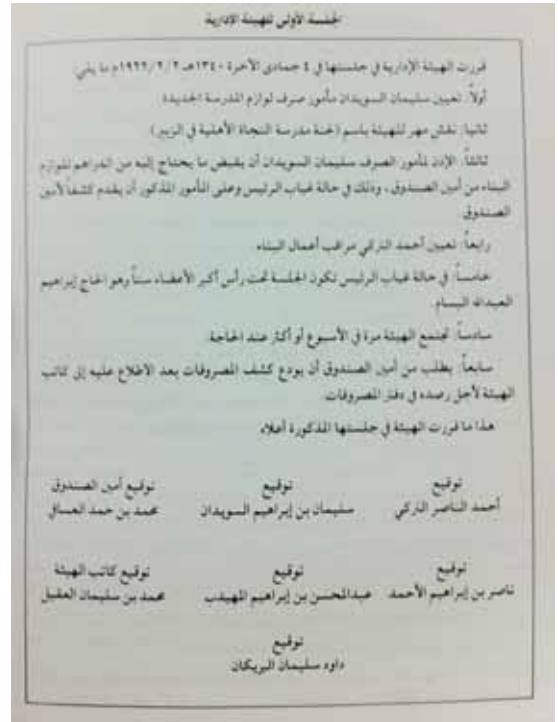 الجلسة الأولى للهيئة الإدارية
قررت الهيئة الإدارية في جلستها في ٤ جمادى الآخرة ١٣٤٠هـ ١٩٢٢/٢/٢م ما يلي:
أولاً: تعيين سليمان السويدان مأمور صرف لوازم المدرسة الجديدة
ثانيا: نقش مهر للهيئة باسم (لجنة مدرسة النجاة الأهلية في الزبير)
ثالثاً: الإذن لمأمور الصرف سليمان السويدان أن يقبض ما يحتاج إليه من الدراهم للوازم
البناء من أمين الصندوق، وذلك في حالة غياب الرئيس وعلى المأمور المذكور أن يقدم كشفاً لأمين
الصندوق
رابعاً: تعيين أحمد التركي مراقب أعمال البناء
خامساً: في حالة غياب الرئيس تكون الجلسة تحت رأس أكبر الأعضاء سناً وهو الحاج إبراهيم
العبدالله البسام
سادساً: تجتمع الهيئة مرة في الأسبوع أو أكثر عند الحاجة
سابعاً: يطلب من أمين الصندوق أن يودع كشف المصروفات بعد الاطلاع عليه إلى كاتب
الهيئة لأجل رصده في دفتر المصروفات
هذا ما قررت الهيئة في جلستها المذكورة أعلاه
توقيع توقيع توقيع أمين الصندوق
أحمد الناصر التركي سليمان بن إبراهيم السويدان محمد بن حمد العسافي
توقيع توقيع توقيع كاتب الهيئة
ناصر بن إبراهيم الأحمد عبدالمحسن بن إبراهيم المهيدب محمد بن سليمان العقيل
توقيع
داود سليمان البريكان